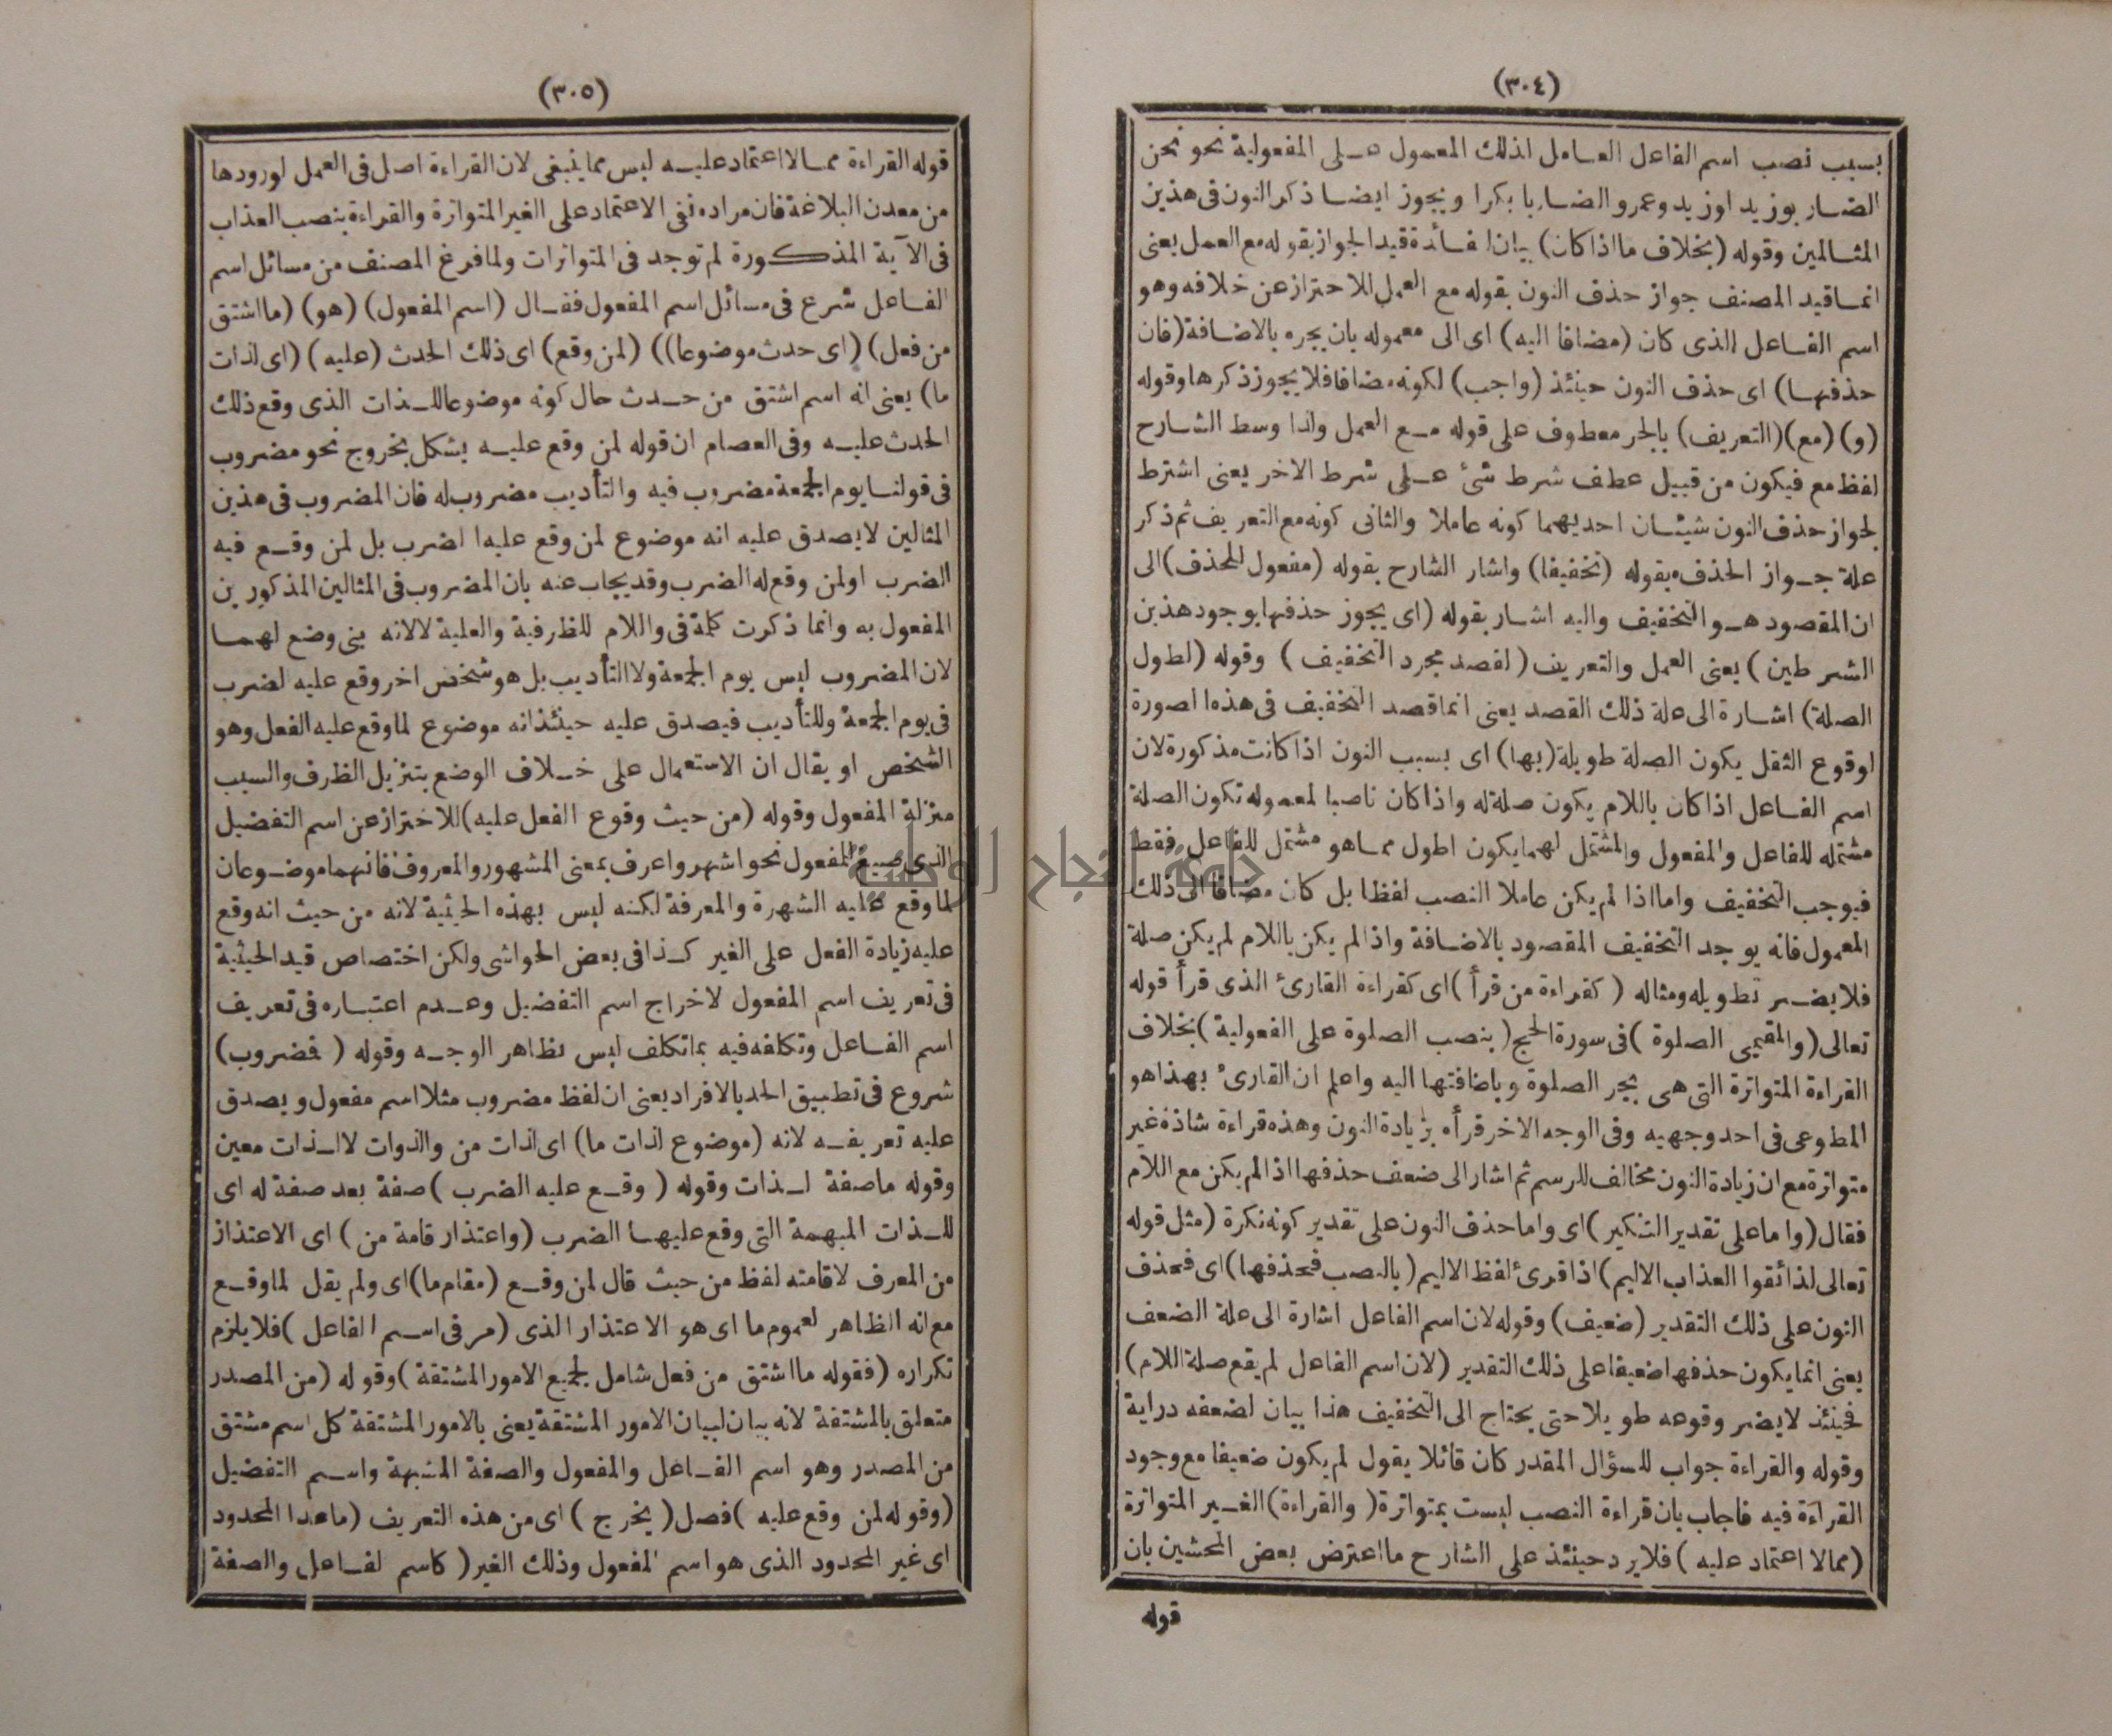 (٣٠٤)
بسبب نصب اسم الفاعل العامل لذلك المعمول على المفعولية نحو نحن
الضاربو زيدا وزيد وعمرو الضاربا بكرا ويجوز ايضا ذكر النون فى هذين
المثالين وقوله (بخلاف ما اذا كان) بيان لفائدة قيد الجواز بقوله مع العمل يعنى
انما قيد المصنف جواز حذف النون بقوله مع العمل للاحتراز عن خلافه وهو
اسم الفاعل الذى كان (مضافا اليه) اى الى معموله بان يجره بالاضافة (فان
حذفها) اى حذف النون حينئذ (واجب) لكونه مضافا فلا يجوز ذكرها وقوله
(و) (مع) (التعريف) بالجر معطوف على قوله مع العمل ولذا وسط الشارح
لفظ مع فيكون من قبيل عطف شرط شئ على شرط الاخر يعنى اشترط
لجواز حذف النون شيئان احديهما كونه عاملا والثانى كونه مع التعريف ثم ذكر
علة جواز الحذف بقوله (تخفيفا) واشار الشارح بقوله (مفعول للحذف) الى
ان المقصود هو التخفيف واليه اشار بقوله (اى يجوز حذفها بوجود هذين
الشرطين) يعنى العمل والتعريف (لقصد مجرد التخفيف) وقوله (لطول
الصلة) اشارة الى علة ذلك القصد يعنى انما قصد التخفيف فى هذه الصورة
لوقوع الثقل يكون الصلة طويلة (بها) اى بسبب النون اذا كانت مذكورة لان
اسم الفاعل اذا كان باللام يكون صلة له واذا كان ناصبا لمعموله تكون الصلة
مشتمله للفاعل والمفعول والمشتمل لهما يكون اطول مما هو مشتمل للفاعل فقط
فيوجب التخفيف واما اذا لم يكن عاملا النصب لفظا بل كان مضافا الى ذلك
المعمول فانه يوجد التخفيف المقصود بالاضافة واذا لم يكن باللام لم يكن صلة
فلا يضر تطويله ومثاله (كقراءة من قرأ) اى كقراءة القارئ الذى قرأ قوله
تعالى (والمقيمى الصلوة) فى سورة الحج (بنصب الصلوة على المفعولية) بخلاف
القراءة المتواترة التى هى بجر الصلوة وباضافتها اليه واعلم ان القارئ بهذا هو
المطوعى فى احد وجهيه وفى الوجه الاخر قرأه بزيادة النون وهذه قراءة شاذة غير
متواترة مع ان زيادة النون مخالف للرسم ثم اشار الى ضعف حذفها اذا لم يكن مع اللام
فقال (واما على تقدير التنكير) اى واما حذف النون على تقدير كونه نكرة (مثل قوله
تعالى لذائقوا العذاب الاليم) اذا قرئ لفظ الاليم (بالنصب فحذفها) اى فحذف
النون على ذلك التقدير (ضعيف) وقوله لان اسم الفاعل اشارة الى علة الضعف
يعنى انما يكون حذفها ضعيفا على ذلك التقدير (لان اسم الفاعل لم يقع صلة اللام)
فحينئذ لا يضر وقوعه طويلا حتى يحتاج الى التخفيف هذا بيان لضعفه دراية
وقوله والقراءة جواب للسؤال المقدر كان قائلا يقول لم يكون ضعيفا مع وجود
القراءة فيه فاجاب بان قراءة النصب ليست بمتواترة (والقراءة) الغير المتواترة
(مما لا اعتماد عليه) فلا يرد حينئذ على الشارح ما اعترض بعض المحشين بان
قوله
(٣٠٥)
قوله القراءة مما لا اعتماد عليه ليس مما ينبغى لان القراءة اصل فى العمل لورودها
من معدن البلاغة فان مراده نفى الاعتماد على الغير المتواترة والقراءة بنصب العذاب
فى الآية المذكورة لم توجد فى المتواترات ولما فرغ المصنف من مسائل اسم
الفاعل شرع فى مسائل اسم المفعول فقال (اسم المفعول) (هو) (ما اشتق
من فعل) (اى حدث موضوعا)) (لمن وقع) اى ذلك الحدث (عليه) (اى لذات
ما) يعنى انه اسم اشتق من حدث حال كونه موضوعا للذات الذى وقع ذلك
الحدث عليه وفى العصام ان قوله لمن وقع عليه يشكل بخروج نحو مضروب
فى قولنا يوم الجمعة مضروب فيه والتأديب مضروب له فان المضروب فى هذين
المثالين لا يصدق عليه انه موضوع لمن وقع عليه الضرب بل لمن وقع فيه
الضرب او لمن وقع له الضرب وقد يجاب عنه بان المضروب فى المثالين المذكورين
المفعول به وانما ذكرت كلمة فى واللام للظرفية والعلية لا لانه يبنى وضع لهما
لان المضروب ليس يوم الجمعة ولا التأديب بل هو شخص اخر وقع عليه الضرب
فى يوم الجمعة وللتأديب فيصدق عليه حينئذ انه موضوع لما وقع عليه الفعل وهو
الشخص او يقال ان الاستعمال على خلاف الوضع بتنزيل الظرف والسبب
منزلة المفعول وقوله (من حيث وقوع الفعل عليه) للاحتراز عن اسم التفضيل
الذى صيغ للمفعول نحو اشهر واعرف بمعنى المشهور والمعروف فانهما موضوعان
لما وقع عليه الشهرة والمعرفة لكنه ليس بهذه الحيثية لانه من حيث انه وقع
عليه زيادة الفعل على الغير كذا فى بعض الحواشى ولكن اختصاص قيد الحيثية
فى تعريف اسم المفعول لاخراج اسم التفضيل وعدم اعتباره فى تعريف
اسم الفاعل وتكلفه فيه بما تكلف ليس بظاهر الوجه وقوله (فمضروب)
شروع فى تطبيق الحد بالافراد يعنى ان لفظ مضروب مثلا اسم مفعول ويصدق
عليه تعريفه لانه (موضوع لذات ما) اى لذات من والذوات لا لذات معين
وقوله ما صفة لذات وقوله (وقع عليه الضرب) صفة بعد صفة له اى
للذات المبهمة التى وقع عليها الضرب (واعتذار قامة من) اى الاعتذار
من المعرف لاقامته لفظ من حيث قال لمن وقع (مقام ما) اى ولم يقل لما وقع
مع انه الظاهر لعموم ما اى هو الاعتذار الذى (مر فى اسم الفاعل) فلا يلزم
تكراره (فقوله ما اشتق من فعل شامل لجميع الامور المشتقة) وقوله (من المصدر
متعلق بالمشتقة لانه بيان لبيان الامور المشتقة يعنى بالامور المشتقة كل اسم مشتق
من المصدر وهو اسم الفاعل والمفعول والصفة المشبهة واسم التفضيل
(وقوله لمن وقع عليه) فصل (يخرج) اى من هذه التعريف (ما عدا المحدود
اى غير المحدود الذى هو اسم المفعول وذلك الغير (كاسم لفاعل والصفة
جامعة النجاح الوطنية